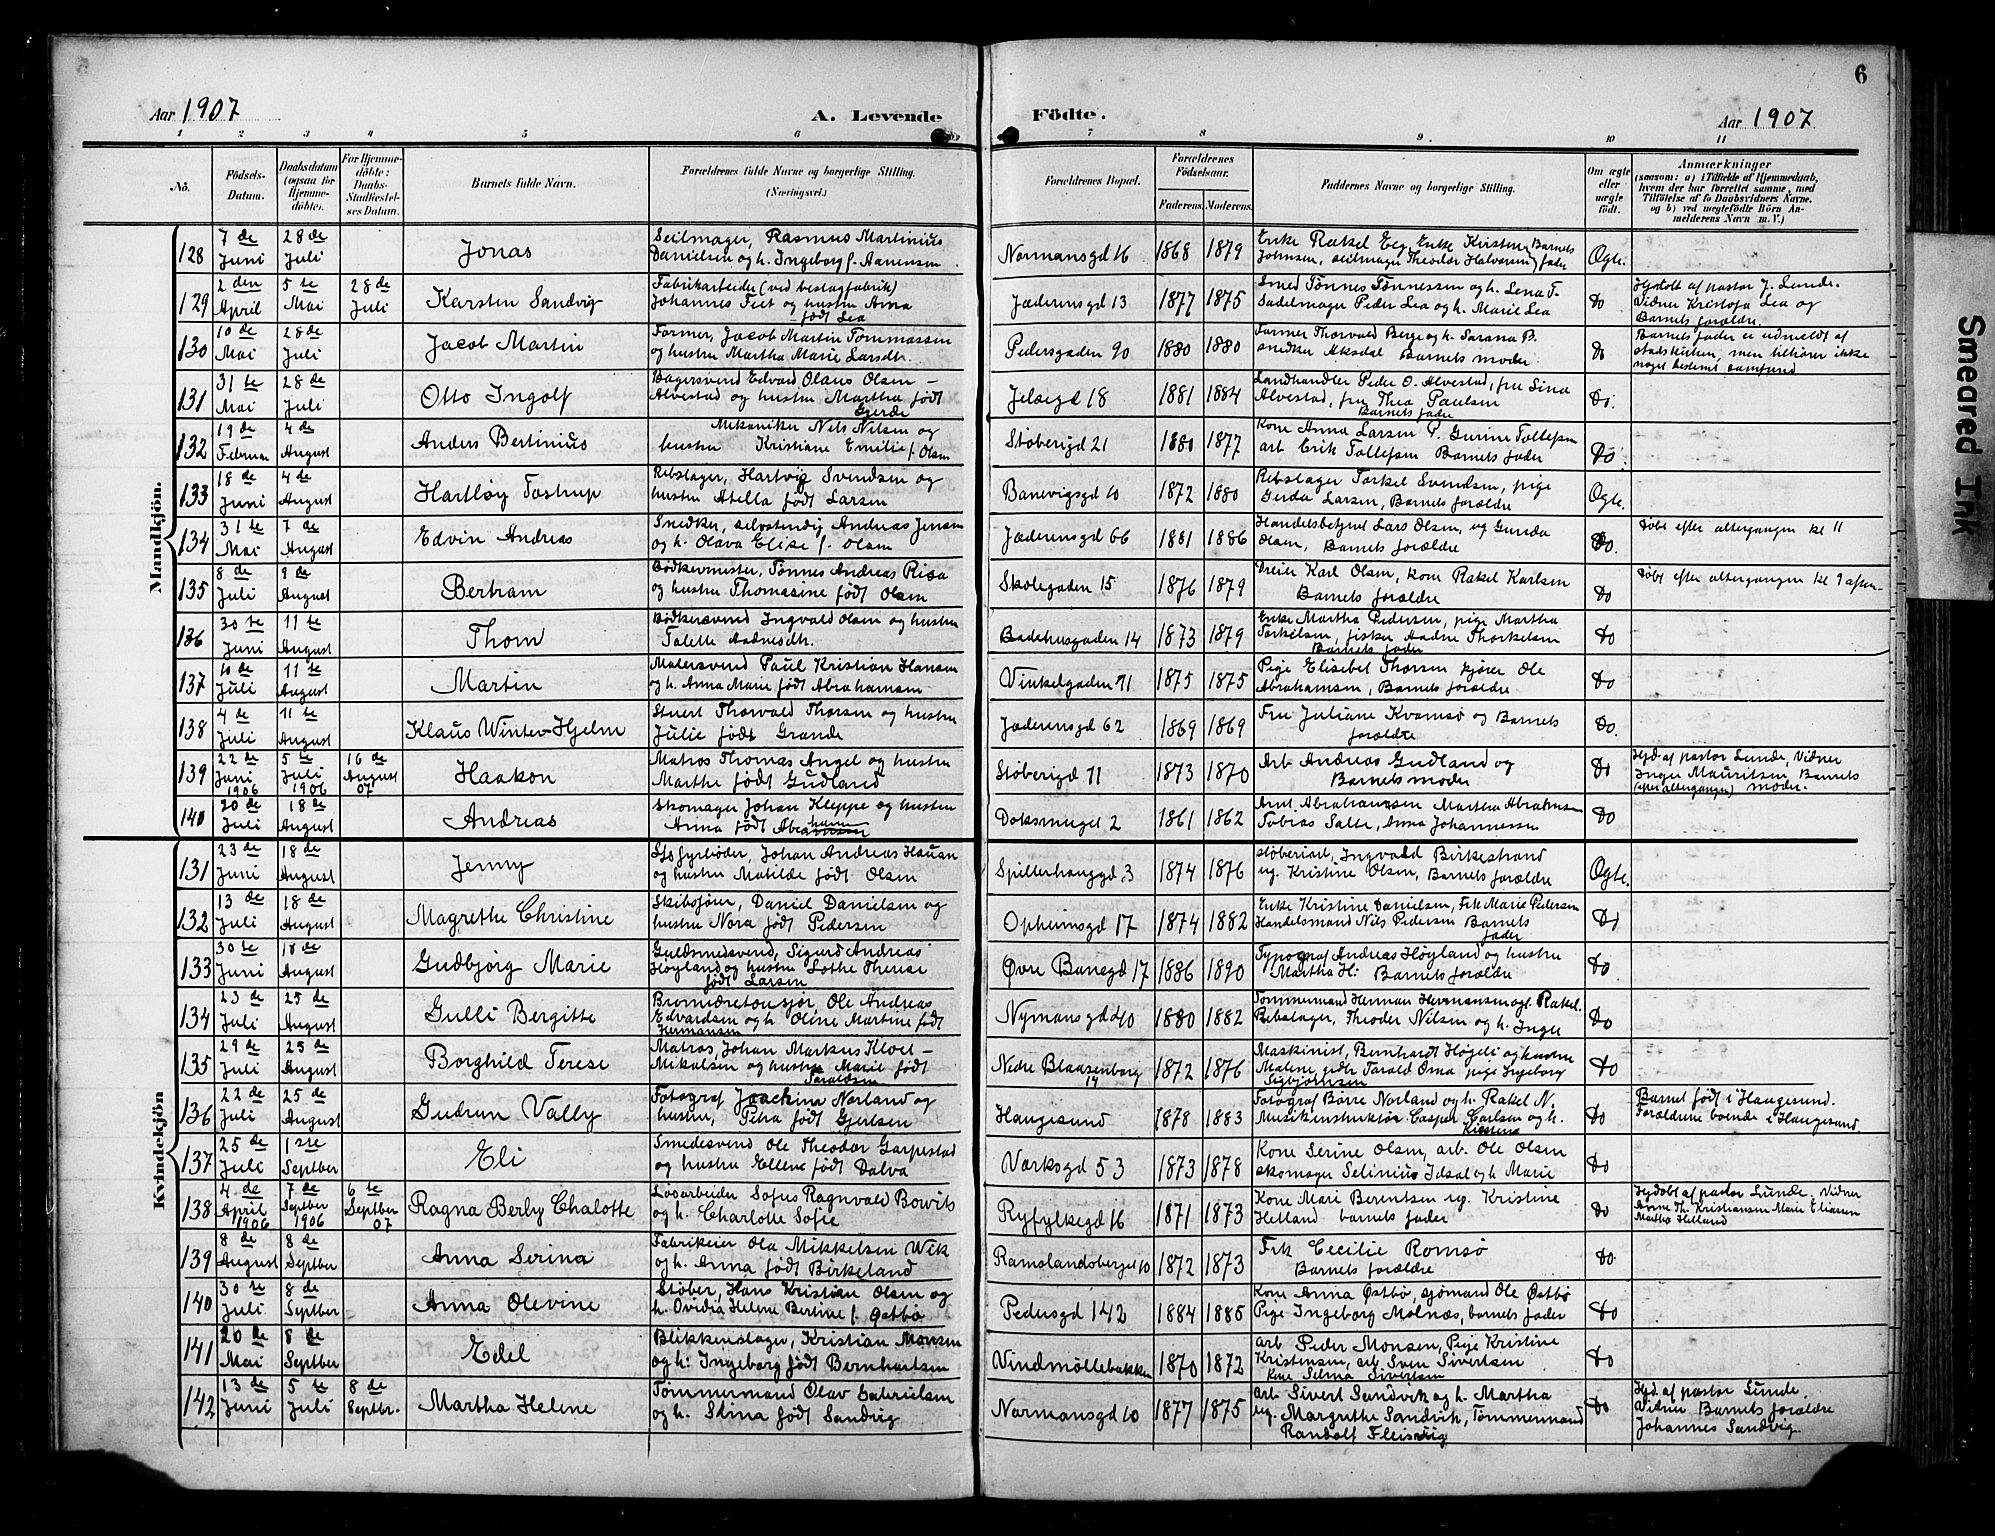 6
Aar 1907
A. Levende
Födte.
Aar 1907
1 2 3 4 5 6 7 8 9 10 11
No.
Födsels-Datum.
Daabsdatum (ogsaa for Hjemme-döbte).
For Hjemme-döbte: Daabs-Stadfæstel-ses Datum.
Barnets fulde Navn.
Forældrenes fulde Navne og borgerlige Stilling. (Næringsvei.)
Forældrenes Bopæl.
Forældrenes Födselsaar.
Faderens. Moderens.
Faddernes Navne og borgerlige Stilling.
Om ægte eller uægte födt.
Anmærkninger
(saasom: a) i Tilfælde af Hjemmedaab, hvem der har forrettet samme, med Tilföielse af to Daabsvidners Navne. og b) ved uægtefödte Börn Anmelderens Navn m. V.)
Mandkjön.
128 7 de Juni 28 de Juli Jonas Seilmager, Rasmus Martinius Danielsen og h. Ingeborg f. Aanensen Normansgd 16 1868 1879 Enke Rakel Eeg, Enke Kirsten Johnsen, seilmager Theodor Halvorsen, Barnets fader Ogte.
129 2 den April 5 te Mai 28 de Juli Karsten Sandvig Fabrikarbeider (ved beslagfabrik) Johannes Feet og hustru Anna født Lea Jæderensgd 13 1877 1875 Smed Tønnes Tønnessen og h. Lena T. Sadelmager Peder Lea og h. Marie Lea Do Hjdøbt af pastor J. Lunde. Vidner Kristofa Lea og Barnets forældre.
130 10 de Mai 28 de Juli Jacob Martin Former, Jacob Martin Tommassen og hustru Martha Marie Larsdtr. Pedersgaden 90 1880 1880 Former Thorvald Berge og h. Sarana B. snedker Aksdal Barnets moder Do Barnets fader er udmeldt af statskirken, men tilhører ikke noget bestemt samfund
131 31 te Mai 28 de Juli Otto Ingolf Bagersvend Edvard Olaus Olsen - Alvestad og hustru Martha født Gjerde Jelsegd 18 1881 1884 Landhandler Peder O. Alvestad, fru Sina Alvestad, fru Thea Paulsen Barnets fader Do.
132 19 de Februar 4 de August Anders Bertinius Mekaniker Nils Nilsen og hustru Kristiane Emilie f. Olsen Støberigd 21 1880 1877 Kone Anna Larsen P. Gurine Tollefsen arb Erik Tollefsen Barnets fader Do.
133 18 de Juni 4 de August Hartløy Tostrup Rebslager, Hartvig Svendsen og hustru Atella født Larsen Banevigsgd 10 1872 1880 Rebslager Torkel Svendsen, pige Gerda Larsen, Barnets forældre Ogte.
134 31 te Mai 7 de August Edvin Andreas Snedker, selvstendig Andreas Jensen og h. Olava Elise f. Olsen Jæderensgd 66 1881 1886 Handelsbetjent Lars Olsen, ug Gunda Olsen, Barnets forældre Do. Døbt efter altergangen kl 11
135 8 de Juli 9 de August Bertram Bødkermester, Tønnes Andreas Risa og hustru Thomasine født Olsen Skolegaden 15 1876 1879 Dreier Karl Olsen, kone Rakel Karlsen Barnets forældre Do Døbt efter altergangen kl 9 aften
136 30 te Juni 11 te August Thom Bødkersvend Ingvald Olsen og hustru Talette Aadnesdtr. Badehusgaden 14 1873 1879 Enke Martha Pedersen, pige Martha Torkelsen, fisker Aadne Thorkelsen Barnets fader Do
137 10 de Juli 11 te August Martin Malersvend Paul Kristian Hansen og h. Anna Marie født Abrahamsen Vinkelgaden 11 1875 1875 Pige Elisebet Thorsen kjører Ole Abrahamsen, Barnets forældre Do
138 4 de Juli 11 te August Klaus Winter-Hjelm Stuert Thorvald Thorsen og hustru Julie født Grande Jæderensgd 62 1869 1869 Fru Juliane Kvamsø og Barnets forældre Do.
139 22 de Juni 1906 5 te Juli 1906 16 de August 07 Haakon Matros Thomas Angel og hustru Marthe født Gudland Støberigd 11 1873 1870 Arb Andreas Gudland og Barnets moder Do Hjd. af pastor Lunde, Vidner Inger Mauritsen Barnets moder. (efter altergangen)
140 20 de Juli 18 de August Andreas Skomager Johan Kleppe og hustru Anna født Abraham Doksmuget 2 1861 1862 Arnt Abrahamsen Martha Abrahamsen Tobias Salte, Anna Johannessen Do
Kvindekjön
131 23 de Juni 18 de August Jenny Stfyrbøder, Johan Andreas Hausan og hustru Matilde født Olsen Spilderhauggd 3 1874 1876 støberiarb, Ingvald Birkestrand ug. Kristine Olsen, Barnets forældre Ogte.
132 13 de Juli 18 de August Magrethe Christine Skibsfører, Daniel Danielsen og hustru Nora født Pedersen Opheimsgd 17 1874 1882 Enke Kristine Danielsen, Frk Marie Pedersen Handelsmand Nils Pedersen Barnets fader Do
133 30 te Juni 18 de August Gudbjørg Marie Guldsmedsvend, Sigurd Andreas Høyland og hustru Lothe Therese født Larsen Øvre Banegd 17 1886 1890 Typograf Andreas Høyland og hustru Martha H. Barnets forældre Do
134 23 de Juli 25 de August Gulli Bergitte Ole Andreas Edvardsen og h. Oline Martine født Hermansen Nymansgd 40 1880 1882 Tømmermand Herman Hermansen og Rakel. Rebslager, Theodor Nilsen og h. Inger Do
135 29 de Juli 25 de August Borghild Terese Matros, Johan Markus Kloet - Mikalsen og hustru Marie født Taraldsen Nedre Blaasenborg 14 1872 1876 Maskinist, Bernhardt Høgeli og hustru Malene, gdbr Tarald Oma pige Ingeborg Sigbjørnsen Do
136 22 de Juli 25 de August Gudrun Vally Fotograf Joachim Norland og hustru, Petra født Gjertsen Haugesund 1878 1883 Fotograf Børre Norland og h. Rakel N. Musikinstruktør Casper Carlsen og h. Kirstine Do Barnet født i Haugesund. Forældrene boende i Haugesund.
137 25 de Juli 1 ste Septber Eli Smedesvend Ole Theodor Garpestad og hustru Ellene født Dalva Værksgd 53 1873 1878 Kone Serine Olsen, arb. Ole Olsen skomager Selinius Idsal og h Marie Do
138 4 de April 1906 7 de Septber 1906 6 te Septber 07 Ragna Berby Chalotte Løsarbeider Sofus Ragnvald Bowits og h. Charlotte Sofie Ryfylkegd 16 1871 1873 Kone Mari Berentsen ug. Kristine Helland barnets fader Do Hjdøbt af pastor Lunde. Vidner Anne Th. Kristiansen Marie Eliasen Martha Helland
139 8 de August 8 de Septber Anna Serina Fabrikeier Ola Mikkelsen Wik og h. Anna født Birkeland Ramslandsberget 10 1872 1873 Frk Cecilie Romsø Barnets forældre Do
140 30 te Juli 8 de Septber Anna Olevine Støber, Hans Kristian Olsen og h. Ovidia Helene Bertine f. Østbø Pedersgd 142 1884 1885 Kone Anna Østbø, sjømand Ole Østbø Pige Ingeborg Molnæs, barnets fader Do
141 20 de Mai 8 de Septber Edel Blikkenslager, Kristian Monsen og h. Ingeborg født Bernhartsen Vindmøllebakken 1870 1872 arb Peder Monsen, Pige Kristine Kristensen, arb Sven Sivertsen Kone Selma Sivertsen Do
142 13 de Juni 5 te Juli 8 de Septbr. Martha Helene Tømmermand Olav Gabrielsen og h. Stina født Sandvig Normansgd 10 1877 1875 arb Sivert Sandvik og h. Martha ug. Margrethe Sandvik, Tømmermand Randolf Fleisvig Do Hjd. af pastor Lunde. Vidner Barnets forældre Johannes Sandvig.
Smeared Ink